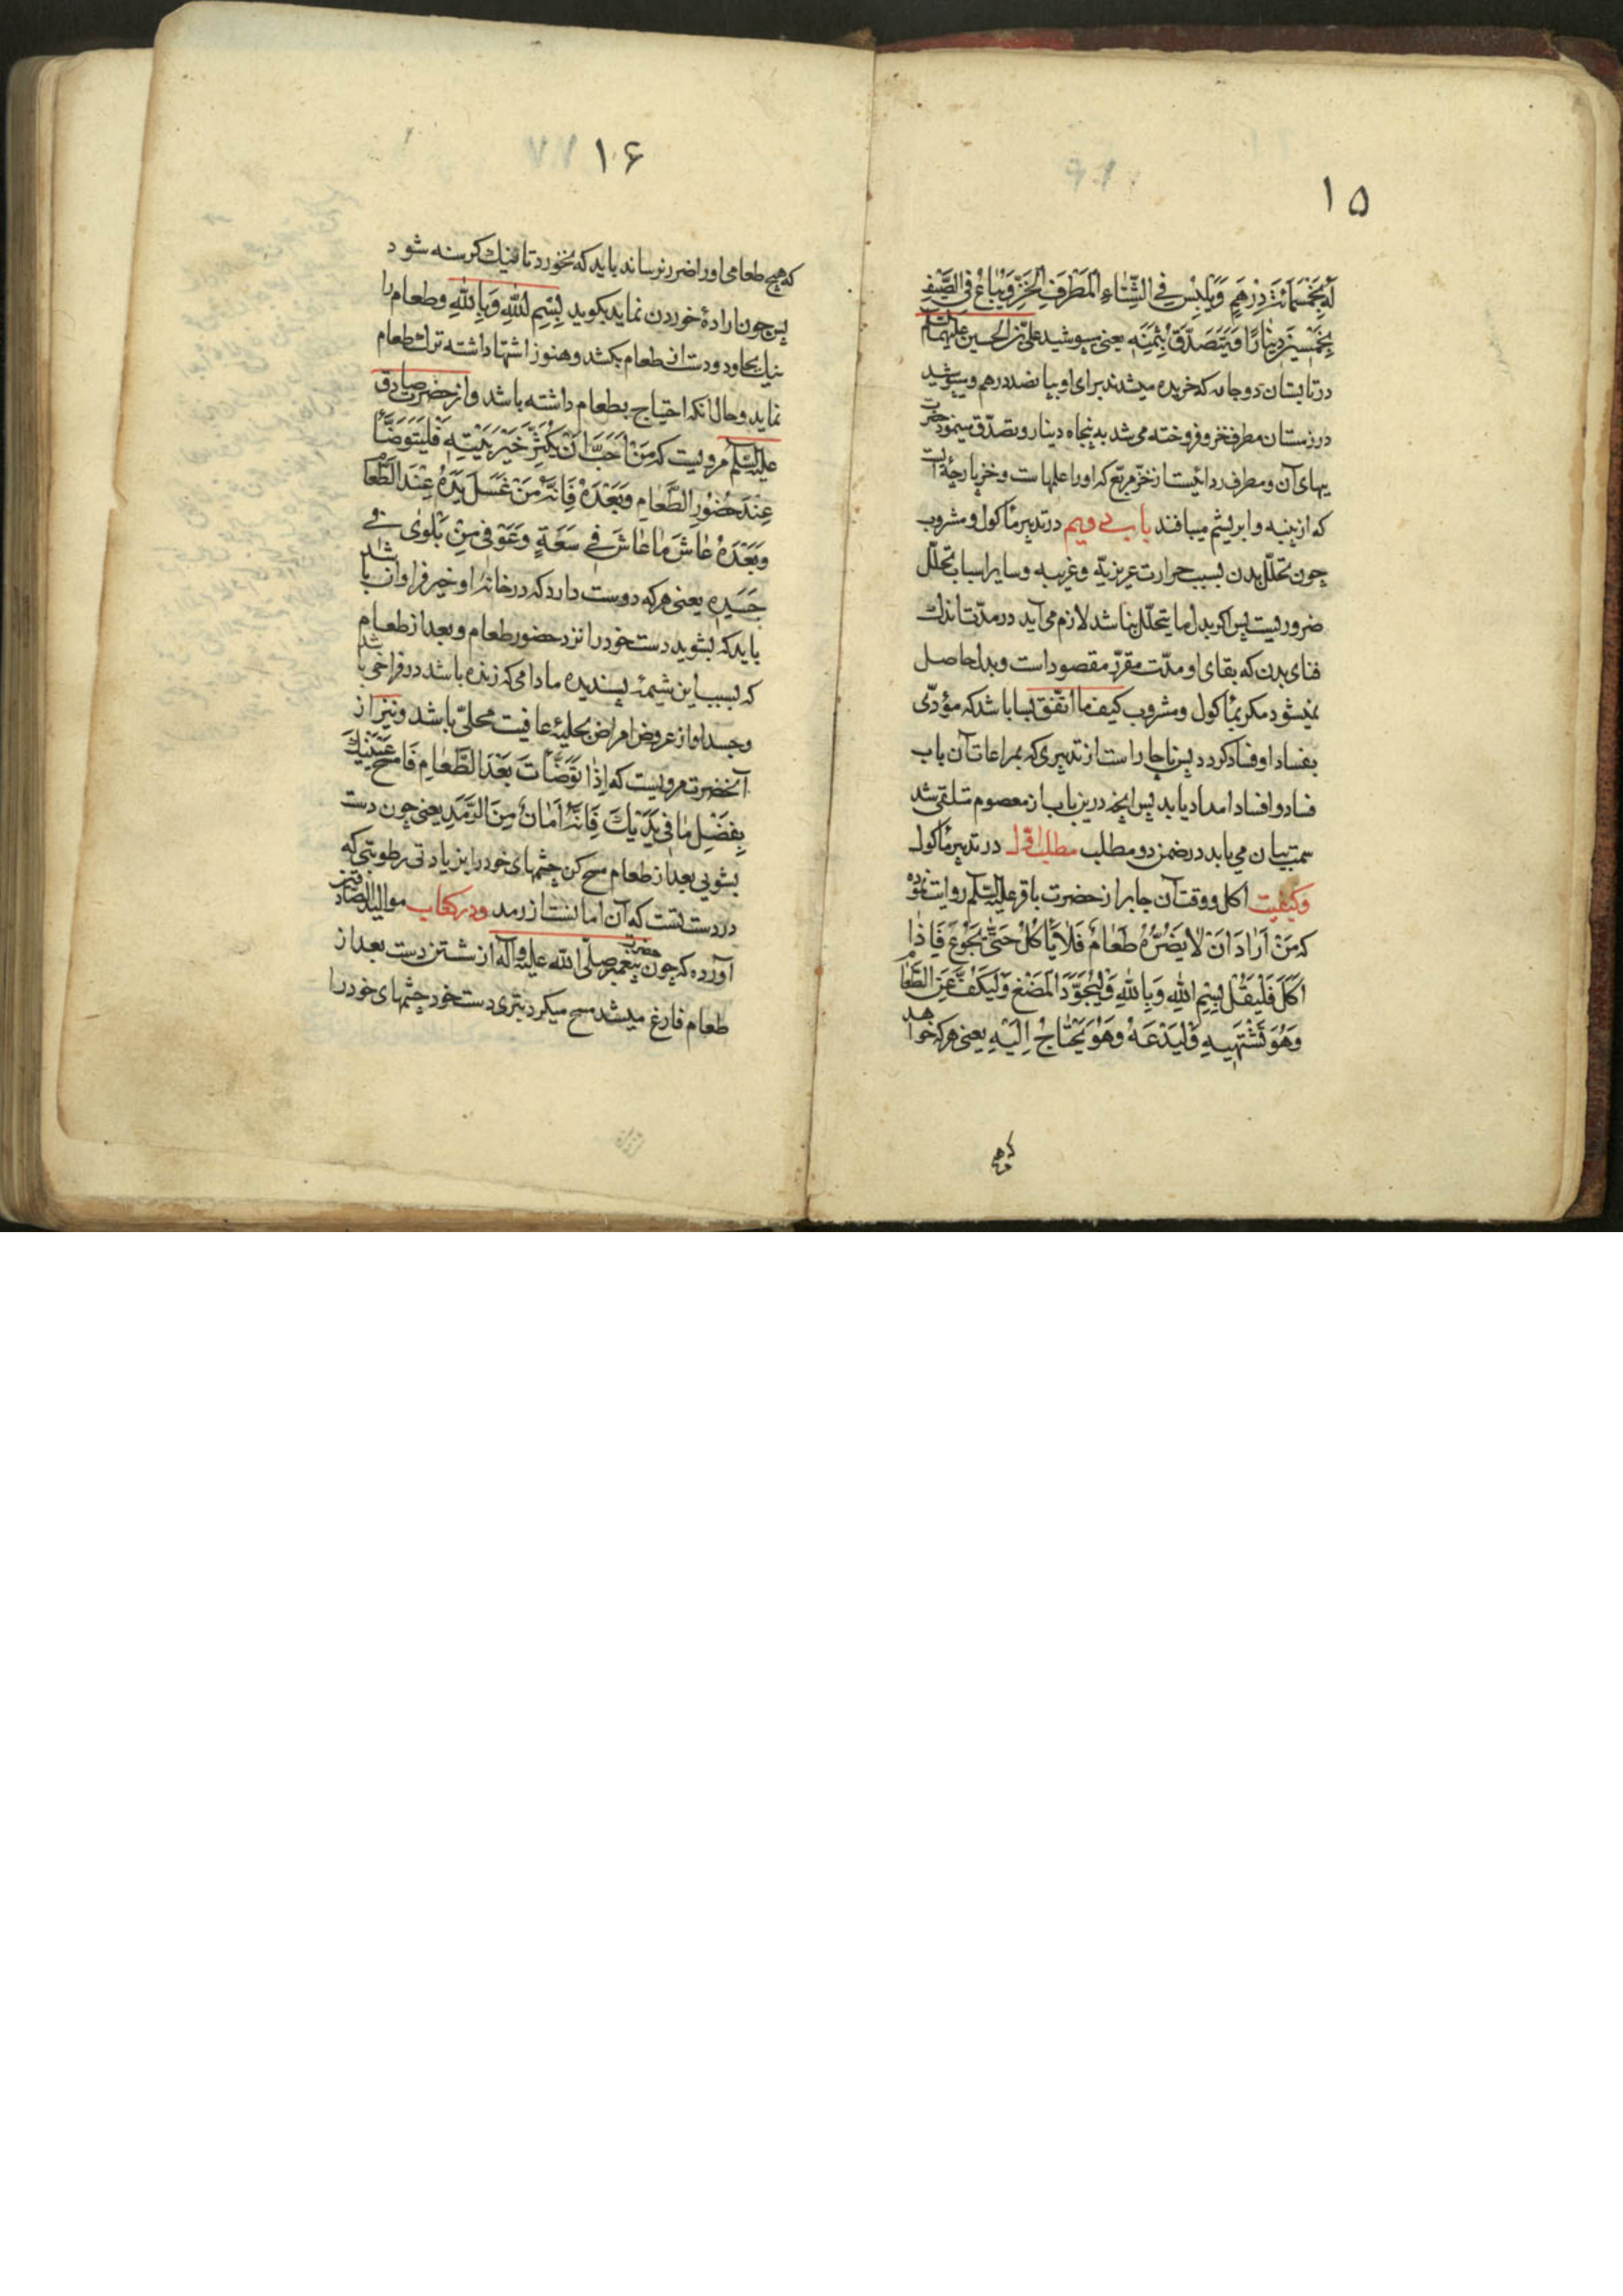 ۱۵
لَهُ بِخَمْسَمِائَةِ دِرْهَمٍ وَيَلْبِسُ فِي الشِّتَاءِ الْمَطْرَفَ الْخَزَّ وَيُبَاعُ فِي الصَّيْفِ
بِخَمْسِينَ دِينَارًا وَيَتَصَدَّقُ بِثَمَنِهِ یعنی میپوشید علی بن الحسین علیهما السلام
در تابستان دو جامه که خریده میشدند برای او بپانصد درهم و میپوشید
در زمستان مطرف خز و فروخته می شد به پنجاه دینار و تصدّق مینمود حضرت
بهای آن و مطرف ردائیست از خزّ مربّع که اورا علمهاست و خز پارچهٔ است
که از پنبه و ابریشم میبافند باب دویم در تدبیر مأکول و مشروب
چون تحلّل بدن بسبب حرارت غریزیّه و غریبه و سایر اسباب تحلّل
ضروریست پس اگر بدل ما یتحلّل نباشد لازم می آید در مدّت اندک
فنای بدن که بقای او مدّت مقرّر مقصود است و بدل حاصل
نمیشود مگر بمأکول و مشروب کیف ما اتّفق بسا باشد که مؤدّی
بفساد او فساد گردد پس ناچار است از تدبیری که بمراعات آن باب
فساد و افساد امداد یابد پس آنچه درین باب از معصوم تلقی شد
سمت بیان می یابد در ضمن دو مطلب مطلب اوّل در تدبیر مأکول
وکیفیت اکل و وقت آن جابر از حضرت باقر علیه السّلم روایت نموده
که مَنْ اَرَادَ اَنْ لَا يَضُرَّهُ طَعَامٌ فَلَا يَأْكُلْ حَتَّى يَجُوعَ فَاِذَا
اَكَلَ فَلْيَقُلْ بِسْمِ اللّٰهِ وَبِاللّٰهِ وَلْيُجَوِّدِ الْمَضْغَ وَلْيَكُفَّ عَنِ الطَّعَامِ
وَهُوَ يَشْتَهِيهِ وَلْيَدَعْهُ وَهُوَ يَحْتَاجُ اِلَيْهِ یعنی هر که خواهد
که هیچ
۱۶
که هیچ طعامی اورا ضرر نرساند باید که نخورد تا نیک گرسنه شود
پس چون ارادهٔ خوردن نماید بگوید بِسْمِ اللّٰهِ وَبِاللّٰهِ و طعام را
نیک بجاود و دست از طعام بکشد و هنوز اشتها داشته ترک طعام
نماید و حال آنکه احتیاج بطعام داشته باشد و از حضرت صادق
علیه السّلم مرویست که مَنْ اَحَبَّ اَنْ يَكْثُرَ خَيْرُ بَيْتِهِ فَلْيَتَوَضَّأْ
عِنْدَ حُضُورِ الطَّعَامِ وَبَعْدَهُ فَاِنَّهُ مَنْ غَسَلَ يَدَهُ عِنْدَ الطَّعَامِ
وَبَعْدَهُ عَاشَ مَا عَاشَ فِي سَعَةٍ وَعُوفِيَ مِنْ بَلْوٰى فِي
جَسَدِهِ یعنی هر که دوست دارد که در خانهٔ او خیر فراوان باشد
باید که بشوید دست خود را نزد حضور طعام و بعد از طعام
که بسبب این شیمهٔ پسندیده مادامی که زنده باشد در فراخی باشد
و جسد او از عروض امراض بحلیهٔ عافیت محلّی باشد و نیز از
آنحضرت مرویست که اِذَا تَوَضَّأْتَ بَعْدَ الطَّعَامِ فَامْسَحْ عَيْنَيْكَ
بِفَضْلِ مَا فِي يَدَيْكَ فَاِنَّهُ اَمَانٌ مِنَ الرَّمَدِ یعنی چون دست
بشویی بعد از طعام مسح کن چشمهای خود را بزیادتی رطوبتی که
در دست تست که آن امانست از رمد و در کتاب موالید الصادقین
آورده که چون حضرت پیغمبر صلّی اللّٰه علیه وآله از شستن دست بعد از
طعام فارغ میشد مسح میکرد بتری دست خود چشمهای خود را